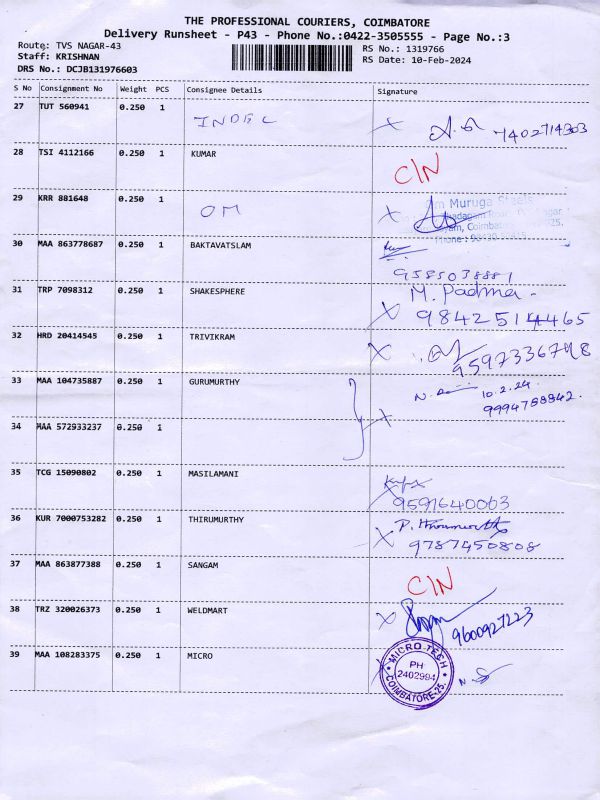 THE PROFESSIONAL COURIERS, COIMBATORE
Delivery Runsheet - P43 - Phone No.:0422-3505555 - Page No.:3
Route: TVS NAGAR-43
RS No.: 1319766
Staff: KRISHNAN
RS Date: 10-Feb-2024
DRS No.: DCJB131976603
S No Consignment No Weight PCS Consignee Details Signature
27 TUT 560941 0.250 1 INDEL 7402714303
28 TSI 4112166 0.250 1 KUMAR C/N
29 KRR 881648 0.250 1 OM
Om Muruga Steels
30 MAA 863778687 0.250 1 BAKTAVATSLAM
9585038881
31 TRP 7098312 0.250 1 SHAKESPHERE M. Padma
9842514465
32 HRD 20414545 0.250 1 TRIVIKRAM
33 MAA 104735887 0.250 1 GURUMURTHY
10.2.24
9994788842
34 MAA 572933237 0.250 1
35 TCG 15090802 0.250 1 MASILAMANI
9591640063
36 KUR 7000753282 0.250 1 THIRUMURTHY
9787450808
37 MAA 863877388 0.250 1 SANGAM C/N
38 TRZ 320026373 0.250 1 WELDMART
9600927223
39 MAA 108283375 0.250 1 MICRO
MICRO TECH
PH
2402994
COIMBATORE-25.